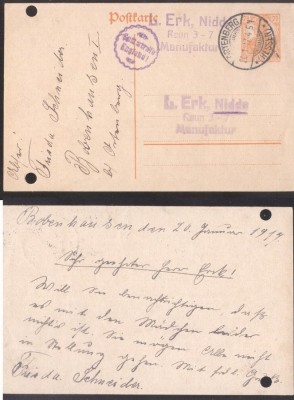 Postkarte
L. Erk, Nidda
Raun 3-7
Manufaktur
ORTENBERG
(HESSEN)
L. Erk, Nidda
Raun 3
Manufaktur
Frieda Schneider
Bobenhausen I
b/ Ortenberg
Bobenhausen den 20. Januar 1919
Sehr geehrter Herr Erk!
Will Sie benachrichtigen, daß
es mit den Mädchen leider
nichts ist. Sie mögen alle nicht
in Stellung gehen. Mit frdl. Gruß
Frieda Schneider.